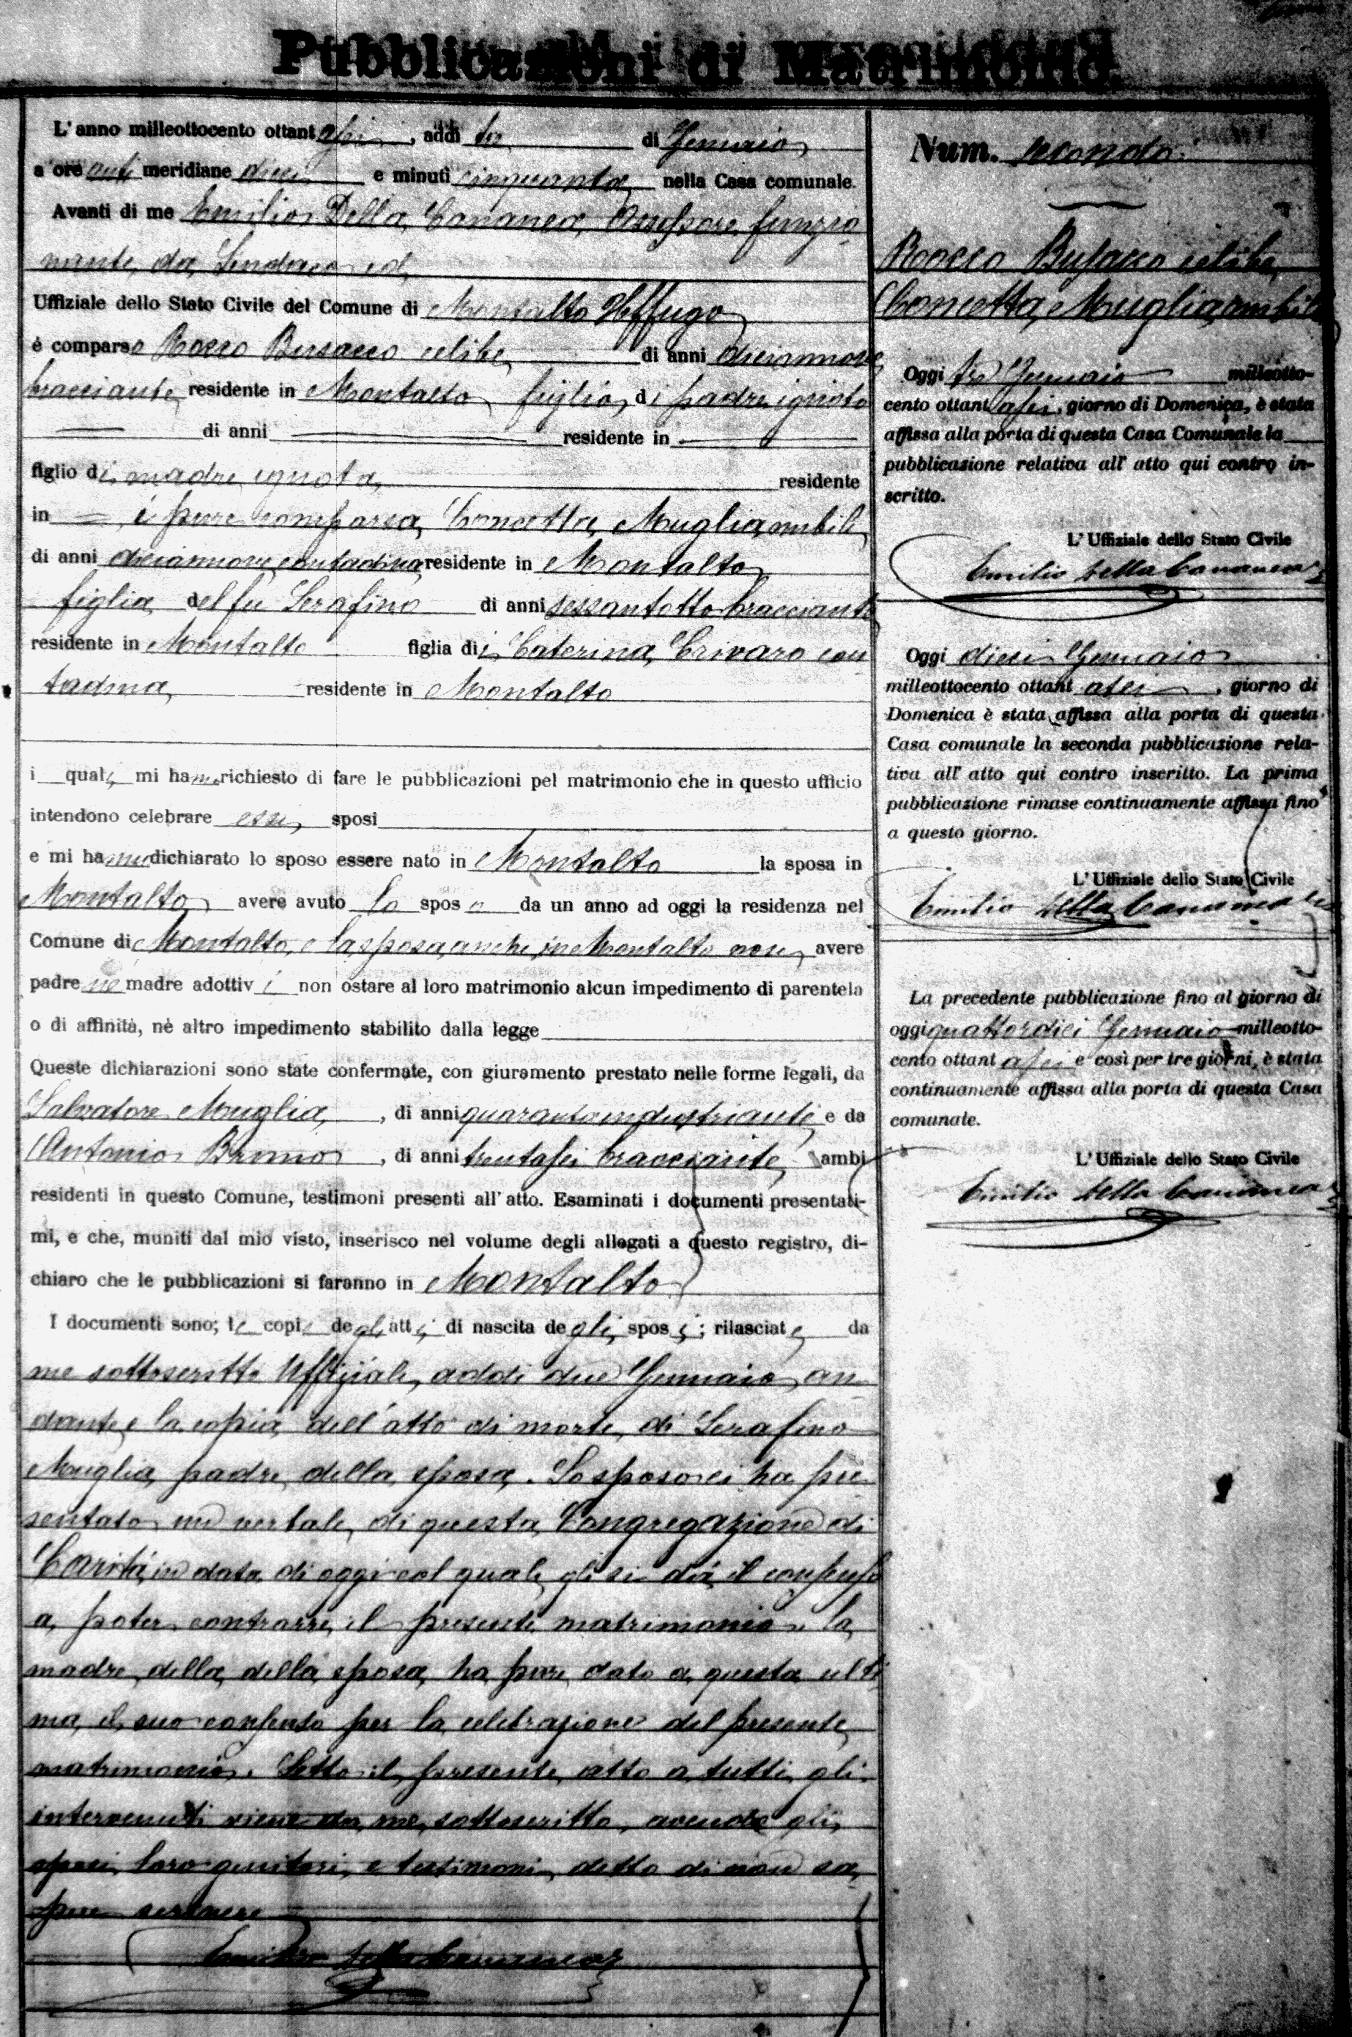 Pubblicazioni di Matrimonio.
L'anno milleottocento ottantasei, addì tre di Gennaio
a ore anti meridiane dieci e minuti cinquanta nella Casa comunale.
Avanti di me Emilio Della Cananea Assessore funzio
nante da Sindaco ed
Uffiziale dello Stato Civile del Comune di Montalto Uffugo
è comparso Rocco Busacco celibe di anni diciannove
bracciante residente in Montalto figlio di padre ignoto
di anni residente in
figlio di madre ignota residente
in è pure comparsa Concetta Muglia nubile
di anni diciannove contadina residente in Montalto
figlia del fu Serafino di anni sessantotto bracciante
residente in Montalto figlia di Caterina Crivaro con
tadina residente in Montalto
i quali mi hanno richiesto di fare le pubblicazioni pel matrimonio che in questo ufficio
intendono celebrare essi sposi
e mi hanno dichiarato lo sposo essere nato in Montalto la sposa in
Montalto avere avuto lo sposo da un anno ad oggi la residenza nel
Comune di Montalto e la sposa anche in Montalto non avere
padre nè madre adottivi non ostare al loro matrimonio alcun impedimento di parentela
o di affinità, nè altro impedimento stabilito dalla legge
Queste dichiarazioni sono state confermate, con giuramento prestato nelle forme legali, da
Salvatore Muglia, di anni quaranta industriante e da
Antonio Bruno, di anni trentasei bracciante ambi
residenti in questo Comune, testimoni presenti all'atto. Esaminati i documenti presentati-
mi, e che, muniti dal mio visto, inserisco nel volume degli allegati a questo registro, di-
chiaro che le pubblicazioni si faranno in Montalto
I documenti sono; le copie degli atti di nascita degli sposi; rilasciate da
me sottoscritto Uffiziale addi due Gennaio an
dante e la copia dell'atto di morte di Serafino
Muglia padre della sposa. Lo sposo ci ha pre
sentato un verbale di questa Congregazione di
Carità in data di oggi col quale gli si dà il consenso
a poter contrarre il presente matrimonio e la
madre della della sposa ha pure dato a questa ulti
ma il suo consenso per la celebrazione del presente
matrimonio. Letto il presente atto a tutti gli
intervenuti viene da me sottoscritto avendo gli
sposi loro genitori e testimoni detto di non sa
pere scrivere
Emilio Della Cananea
Num. secondo
Rocco Busacco celibe
Concetta Muglia nubile
Oggi tre Gennaio milleotto-
cento ottantasei, giorno di Domenica, è stata
affissa alla porta di questa Casa Comunale la
pubblicazione relativa all' atto qui contro in-
scritto.
L'Uffiziale dello Stato Civile
Emilio Della Cananea
Oggi dieci Gennaio
milleottocento ottantasei, giorno di
Domenica è stata affissa alla porta di questa
Casa comunale la seconda pubblicazione rela-
tiva all' atto qui contro inscritto. La prima
pubblicazione rimase continuamente affissa fino
a questo giorno.
L'Uffiziale dello Stato Civile
Emilio Della Cananea
La precedente pubblicazione fino al giorno di
oggi quattordici Gennaio milleotto-
cento ottantasei e così per tre giorni, è stata
continuamente affissa alla porta di questa Casa
comunale.
L'Uffiziale dello Stato Civile
Emilio Della Cananea